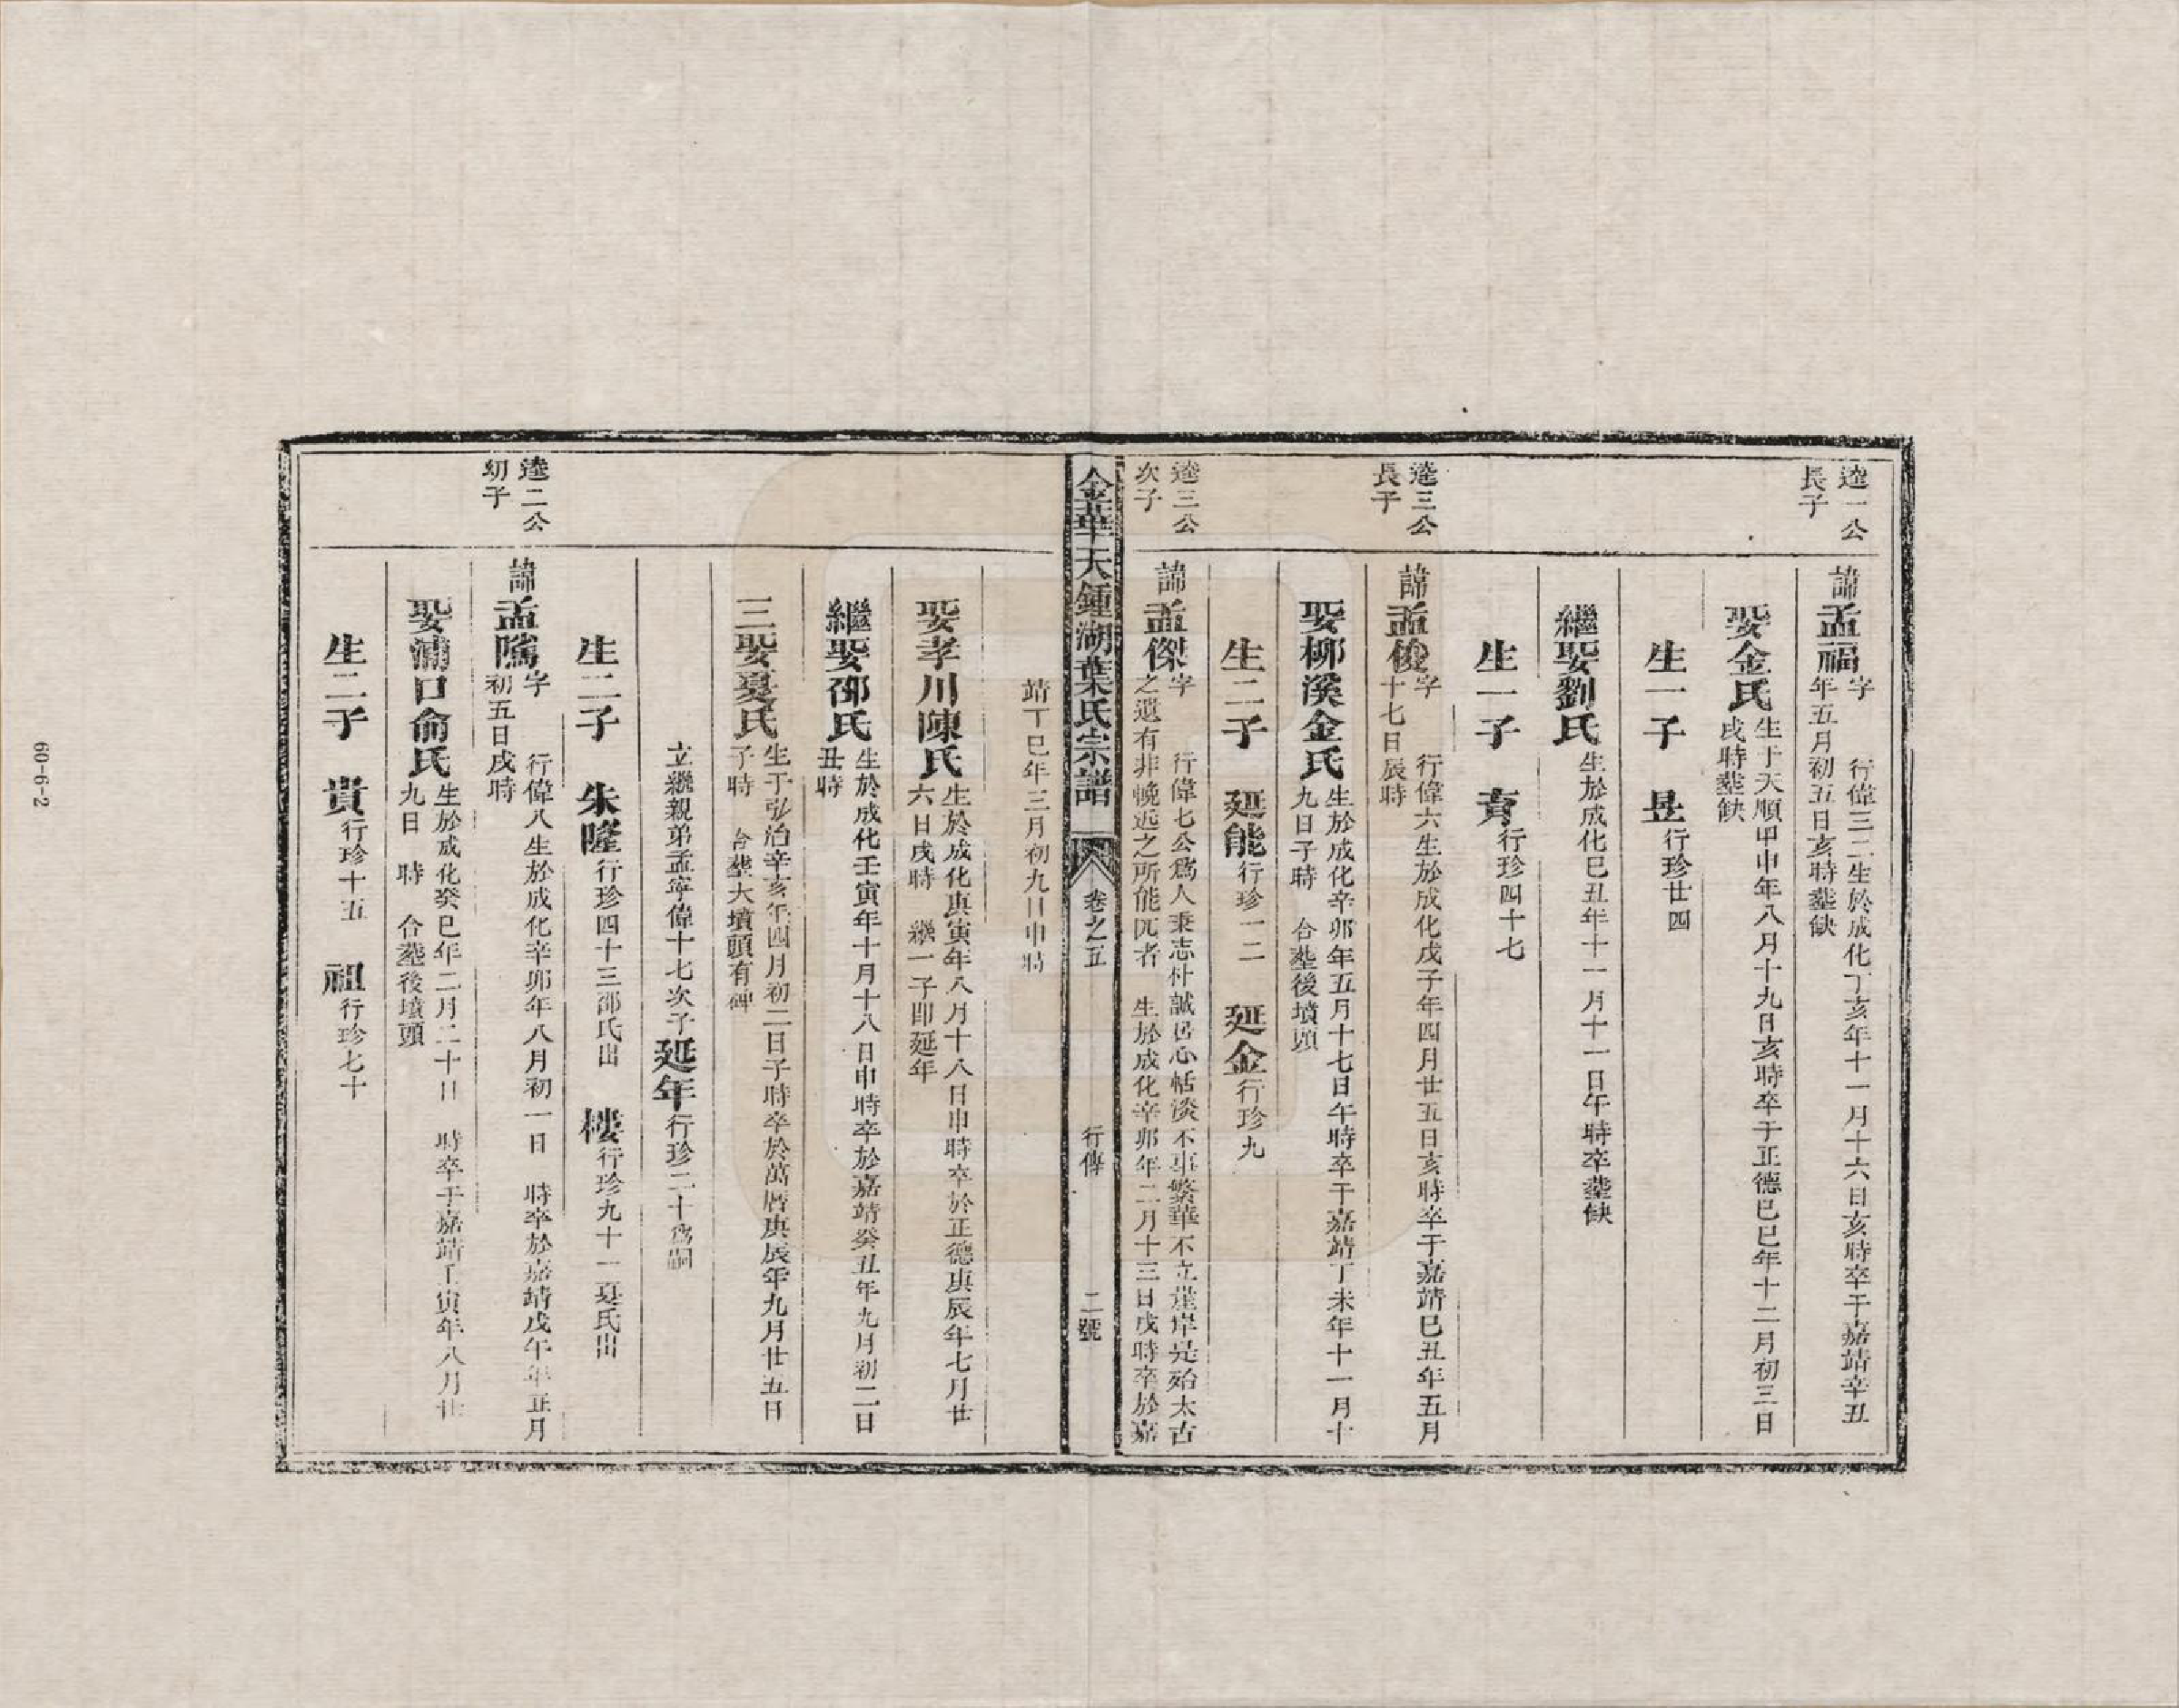 逵一公
長子
諱孟福字　行偉三二生於成化丁亥年十一月十六日亥時卒于嘉靖辛丑
年五月初五日亥時塟缺
娶金氏生于天順甲申年八月十九日亥時卒于正德己巳年十二月初三日
戌時塟缺
生一子　昱行珍廿四
繼娶劉氏生於成化己丑年十一月十一日午時卒塟缺
生一子　賁行珍四十七
逵三公
長子
諱孟俊字　行偉六生於成化戊子年四月廿五日亥時卒于嘉靖己丑年五月
十七日辰時
娶柳溪金氏生於成化辛卯年五月十七日午時卒于嘉靖丁未年十一月十
九日子時　合塟後墳頭
生二子　延能行珍一二　延金行珍九
逵三公
次子
諱孟傑字　行偉七公爲人秉志朴誠居心恬淡不事繁華不立崖岸是殆太古
之遺有非輓近之所能匹者　生於成化辛卯年二月十三日戌時卒於嘉
金華天鍾湖葉氏宗譜　卷之五　行傳　二號
靖丁巳年三月初九日申時
娶孝川陳氏生於成化庚寅年八月十八日申時卒於正德庚辰年七月廿
六日戌時　繼一子即延年
繼娶邵氏生於成化壬寅年十月十八日申時卒於嘉靖癸丑年九月初二日
丑時
三娶夏氏生于弘治辛亥年四月初二日子時卒於萬曆庚辰年九月廿五日
子時　合塟大墳頭有碑
立繼親弟孟寧偉十七次子延年行珍二十爲嗣
生二子　朱隆行珍四十三邵氏出　樓行珍九十一夏氏出
逵二公
幼子
諱孟隲字　行偉八生於成化辛卯年八月初一日　時卒於嘉靖戊午年正月
初五日戌時
娶浦口俞氏生於成化癸巳年二月二十日　時卒于嘉靖壬寅年八月廿
九日　時　合塟後墳頭
生二子　貴行珍十五　祖行珍七十
60-6-2